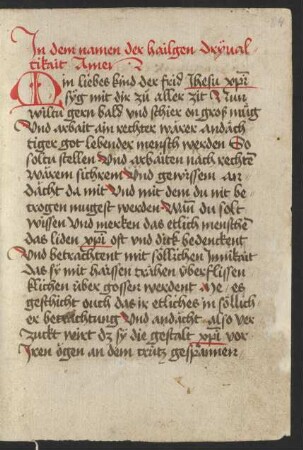 In dem namen der hailgen Dryual
tikait Amen
Min liebes kind der frid Jhesu xpi
syg mit dir zů aller zit Nun
wiltu gern bald vnd schier on groß můg
Vnd arbait ain rechter warer andäch
tiger got lebender mensch werden So
soltu stellen Vnd arbaiten nach rechtē
warem sichrem Vnd gewissem an
dacht da mit Vnd mit dem du nit be
trogen mugest werden Wañ du solt
wissen Vnd merken das etlich menschē
das liden xpi oft vnd dick bedenckent
Vnd betrachtent mit söllichen Innikait
das sy mit haissen trähen überflissen
klichen über gossen werdent Je es
geschicht ouch das ir etliches in sollich
er betrachtung Vnd andacht also ver
zuckt wirt dz sy die gestalt xpi vor
Iren ögen an dem crütz gespannen